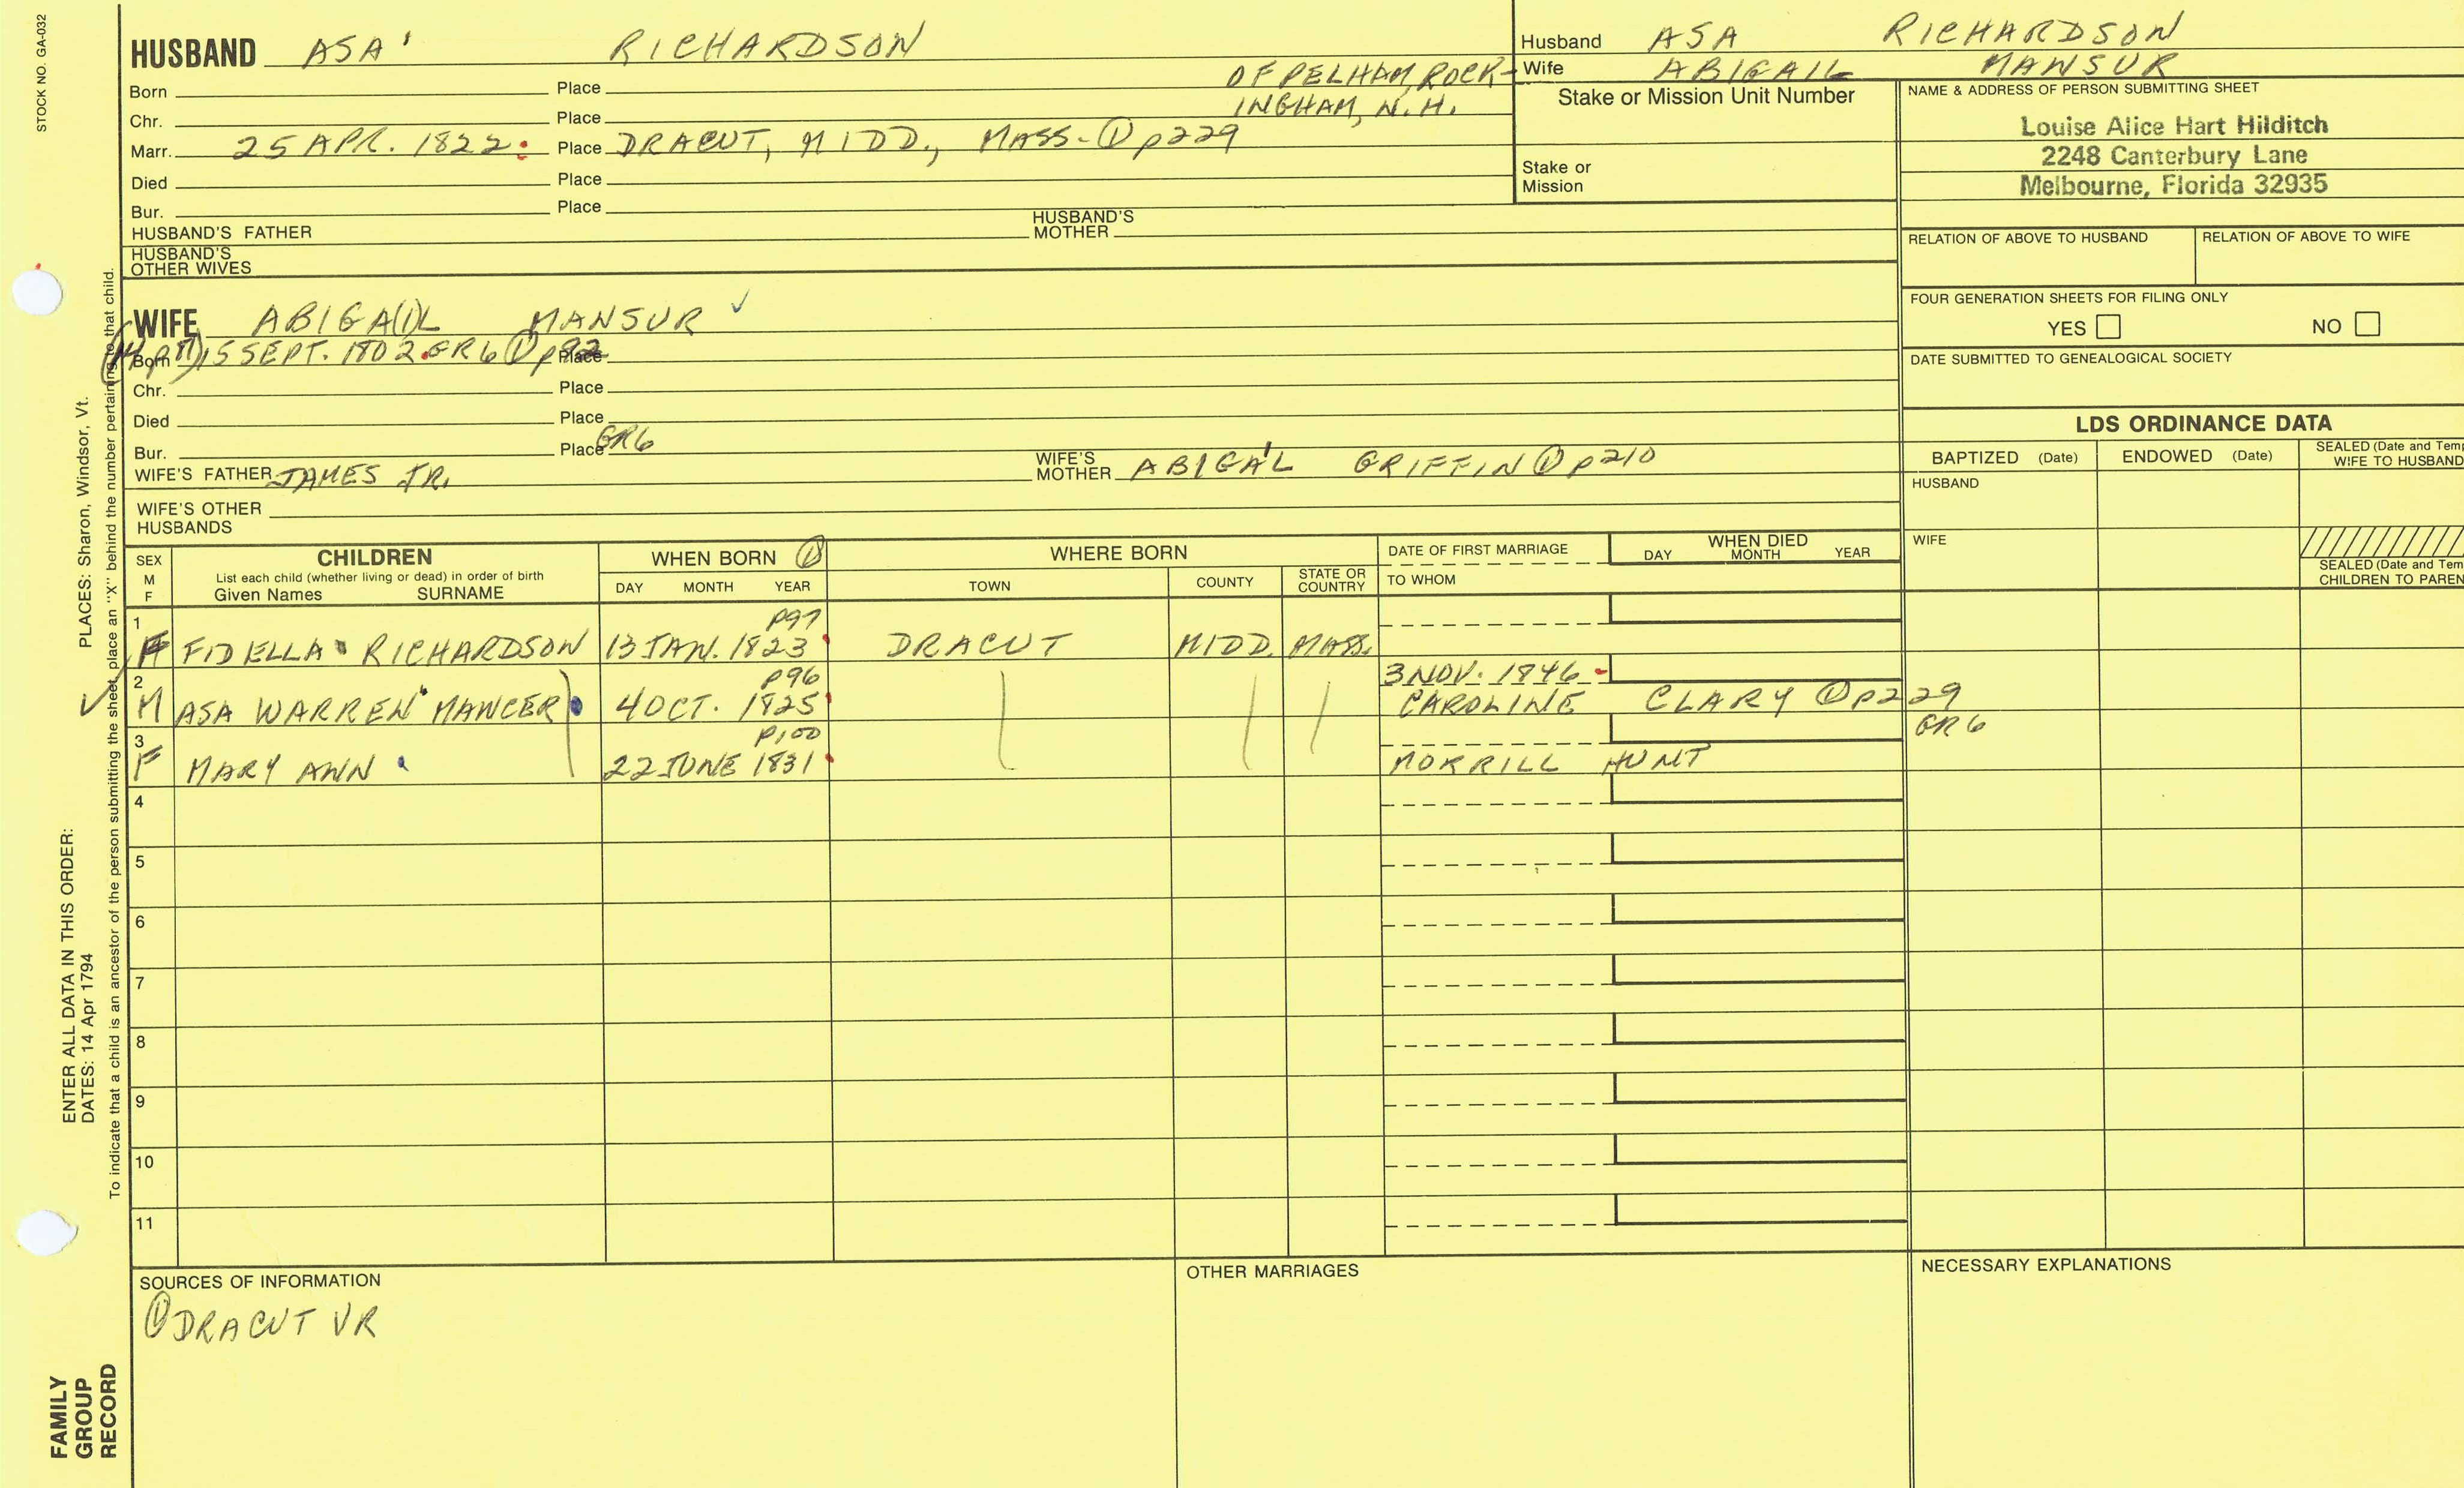 STOCK NO. GA-032
HUSBAND ASA' RICHARDSON
OF PELHAM, ROCK-
INGHAM, N.H.
Born Place
Chr. Place
Marr. 25 APR. 1822 Place DRACUT, MIDD., MASS- ① p229
Died Place
Bur. Place
HUSBAND'S FATHER HUSBAND'S MOTHER
HUSBAND'S OTHER WIVES
Husband ASA RICHARDSON
Wife ABIGAIL MANSUR
Stake or Mission Unit Number
Stake or Mission
NAME & ADDRESS OF PERSON SUBMITTING SHEET
Louise Alice Hart Hilditch
2248 Canterbury Lane
Melbourne, Florida 32935
RELATION OF ABOVE TO HUSBAND RELATION OF ABOVE TO WIFE
FOUR GENERATION SHEETS FOR FILING ONLY
YES NO
DATE SUBMITTED TO GENEALOGICAL SOCIETY
WIFE ABIGA(I)L MANSUR ✓
Born 15 SEPT. 1802 GR6 ① Place
Chr. Place
Died Place
Bur. Place GR6
WIFE'S FATHER JAMES JR. WIFE'S MOTHER ABIGA'L GRIFFIN ① p210
WIFE'S OTHER HUSBANDS
LDS ORDINANCE DATA
BAPTIZED (Date) ENDOWED (Date) SEALED (Date and Temp
WIFE TO HUSBAND
HUSBAND
WIFE
SEALED (Date and Tem
CHILDREN TO PAREN
SEX M F CHILDREN WHEN BORN ① WHERE BORN DATE OF FIRST MARRIAGE WHEN DIED
List each child (whether living or dead) in order of birth
Given Names SURNAME DAY MONTH YEAR TOWN COUNTY STATE OR COUNTRY TO WHOM DAY MONTH YEAR
1 P97
F FIDELLA RICHARDSON 13 JAN. 1823 DRACUT MIDD. MASS.
2 P96 3 NOV. 1846
✓ M ASA WARREN MANCER 4 OCT. 1825 CAROLINE CLARY ① P229
3 P100 GR6
F MARY ANN 22 JUNE 1831 MORRILL HUNT
4
5
6
7
8
9
10
11
SOURCES OF INFORMATION
① DRACUT VR
OTHER MARRIAGES
NECESSARY EXPLANATIONS
PLACES: Sharon, Windsor, Vt.
ENTER ALL DATA IN THIS ORDER:
DATES: 14 Apr 1794
To indicate that a child is an ancestor of the person submitting the sheet, place an "X" behind the number pertaining to that child.
FAMILY
GROUP
RECORD